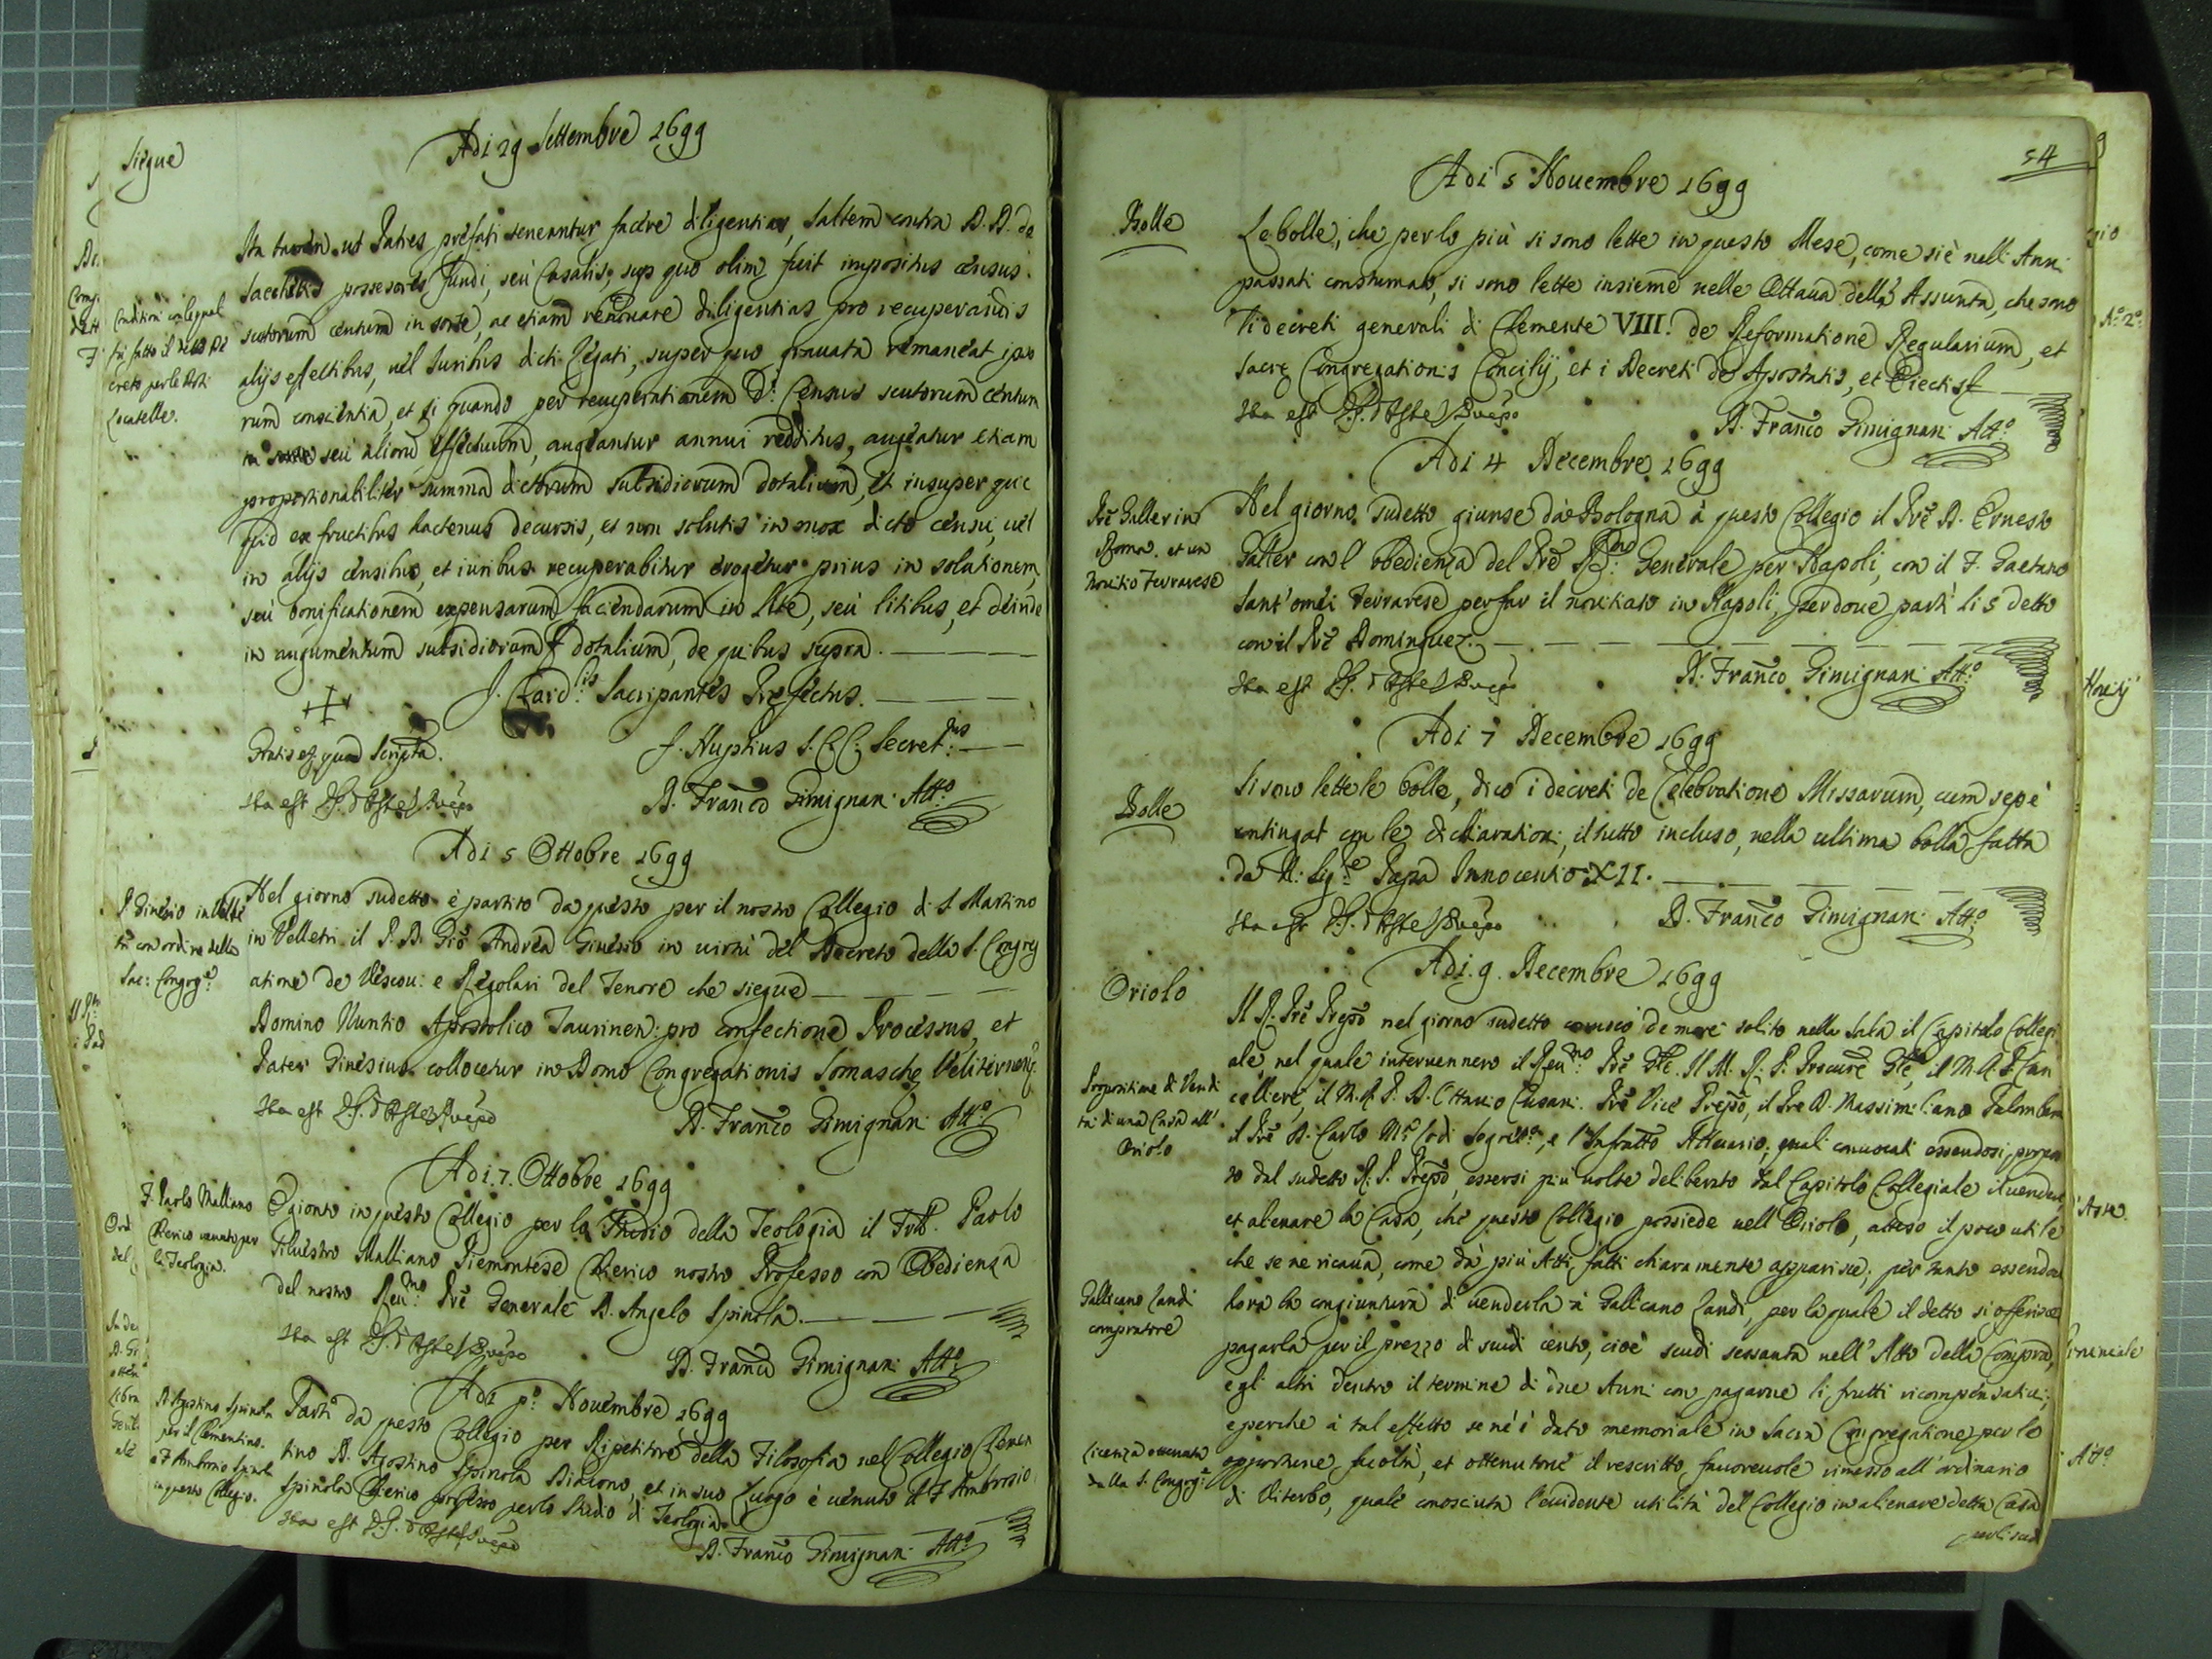 Siegue
Adi 29 Settembre 1699
Ita tamen ut Patres prefati teneantur facere diligentias, saltem contra D.D. de
Sacchettis possessores fundi, seù Casalis, sup quo olim fuit impositus census
scutorum centum in sorte, ac etiam renovare diligentias pro recuperandis
alijs effectibus, uel Iuribus dicti Legati, super quo grauata remaneat ipso
rum conscientia, et si quando per recuperationem d.i Census scutorum centum
in sorte seù aliorum effectuum, augeantur annui redditus, augeatur etiam
proportionabiliter summa dictorum subsidiorum dotalium, et insuper quic
quid ex fructibus hactenus decursis, et non solutis in mox dicto censu, uel
in alijs censibus, et iuribus recuperabitur erogetur prius in solutionem,
seù bonificationem expensarum faciendarum in lite, seù litibus, et deinde
in augumentum subsidiorum dotalium, de quibus supra.
Conditioni con le quali
fù fatto il de
creto per le Doti
Locatelle.
J. Card.lis Sacripantes Prefectus.
Gratis et quoad Scripta.
f. Nuptius S.C.C. Secret.us
Ita est
D. Franco Gimignani Att.o
Adi 5 Ottobre 1699
P. Ginesio in Velle
tri con ordine della
Sac: Congrg.e
Nel giorno sudetto è partito da questo per il nostro Collegio di S. Martino
in Velletri il P. D. Gio Andrea Ginesio in uirtù del Decreto della S. Congreg
atione de Vescoui e Regolari del Tenore che siegue
Domino Nuntio Apostolico Taurinen: pro confectione Processus, et
Pater Ginesius collocetur in Domo Congregationis Somasche Veliternen.
Ita est
D. Franco Gimignani Att.o
Adi 7. Ottobre 1699
F. Paolo Malliano
Chierico uenuto per
la Teologia.
È gionto in questo Collegio per lo Studio della Teologia il Frllo Paolo
Siluestro Malliano Piemontese Chierico nostro Professo con Obedienza
del nostro Reu.mo Prè Generale D. Angelo Spinola.
Ita est
D. Franco Gimignani Att.o
Adi p.o Nouembre 1699
D. Agostino Spinola
per il Clementino.
e F. Ambrosio Spinola
in questo Collegio.
Partì da questo Collegio per Ripetitore della Filosofia nel Collegio Clemen
tino D. Agostino Spinola Diacono, et in suo Luogo è uenuto il F. Ambrosio
Spinola Chierico professo per lo Studio di Teologia
Ita est
D. Franco Gimignani Att.o
54
Adi 5 Nouembre 1699
Bolle
Le bolle, che per lo più si sono lette in questo Mese, come si è nelli Anni
passati constumato, si sono lette insieme nelle Ottaua della Assunta, che sono
li decreti generali di Clemente VIII. de Reformatione Regularium, et
Sacre Congregationis Concilij, et i Decreti de Apostatis, et Eiectis
Ita est
D. Franco Gimignani Att.o
Adi 4 Decembre 1699
Prè Galler in
Roma. et un
Nouitio Ferrarese
Nel giorno sudetto giunse dà Bologna à questo Collegio il Prè D. Ernesto
Galler con l'obedienza del Prè R.mo Generale per Napoli, con il F. Gaetano
Sant'omei Ferrarese per far il nouitiato in Napoli, per doue partì li 5 detto
con il Prè Dominguez.
Ita est
D. Franco Gimignani Att.o
Adi 7 Decembre 1699
Bolle
Si sono lette le bolle, dico i decreti de Celebratione Missarum, cum sepe
contingat con le dichiarationi, il tutto incluso, nella ultima bolla fatta
da N: Sig.re Papa Innocentio XII.
Ita est
D. Franco Gimignani Att.o
Adi. 9. Decembre 1699
Oriolo
Il R. Prè Prepo nel giorno sudetto de more solito nella Sala il Capitolo Collegi
ale, nel quale interuennero il Reu.mo Prè Gle. Il M. R. P. Procure Gle, il M. R. P. Can
celliere, il M. R. P. D. Ottauio Cusani. Prè Vice Prepo, il Prè D. Massimiliano Palombara
il Prè D. Carlo M.a Lodi Segret.o, e l'Infratto Attuario, quali conuocati essendosi propo
sto dal sudetto R. P. Prepo, essersi più uolte deliberato dal Capitolo Collegiale il uendere,
et alienare la Casa, che questo Collegio possiede nell'Oriolo, atteso il poco utile
che se ne ricaua, come dà più Atti fatti chiaramente apparisce; per tanto essendoui
hora la congiuntura di uenderla à Gallicano Landi, per la quale il detto si offerisce
pagarla per il prezzo di scudi cento, cioè scudi sessanta nell'Atto della Compra,
e gl'altri dentro il termine di due Anni con pagarne li frutti ricompensatiui;
e perche à tal effetto se n'è dato memoriale in Sacra Congregatione per le
opportune facoltà, et ottenutone il rescritto fauoreuole rimesso all'ordinario
di Viterbo, quale conosciuta l'euidente utilità del Collegio in alienare detta Casa
per li scud
Propositione di Vendi
ta di una Casa all'
Oriolo
Gallicano Landi
compratore
Licenza ottenuta
dalla S. Congrg.e